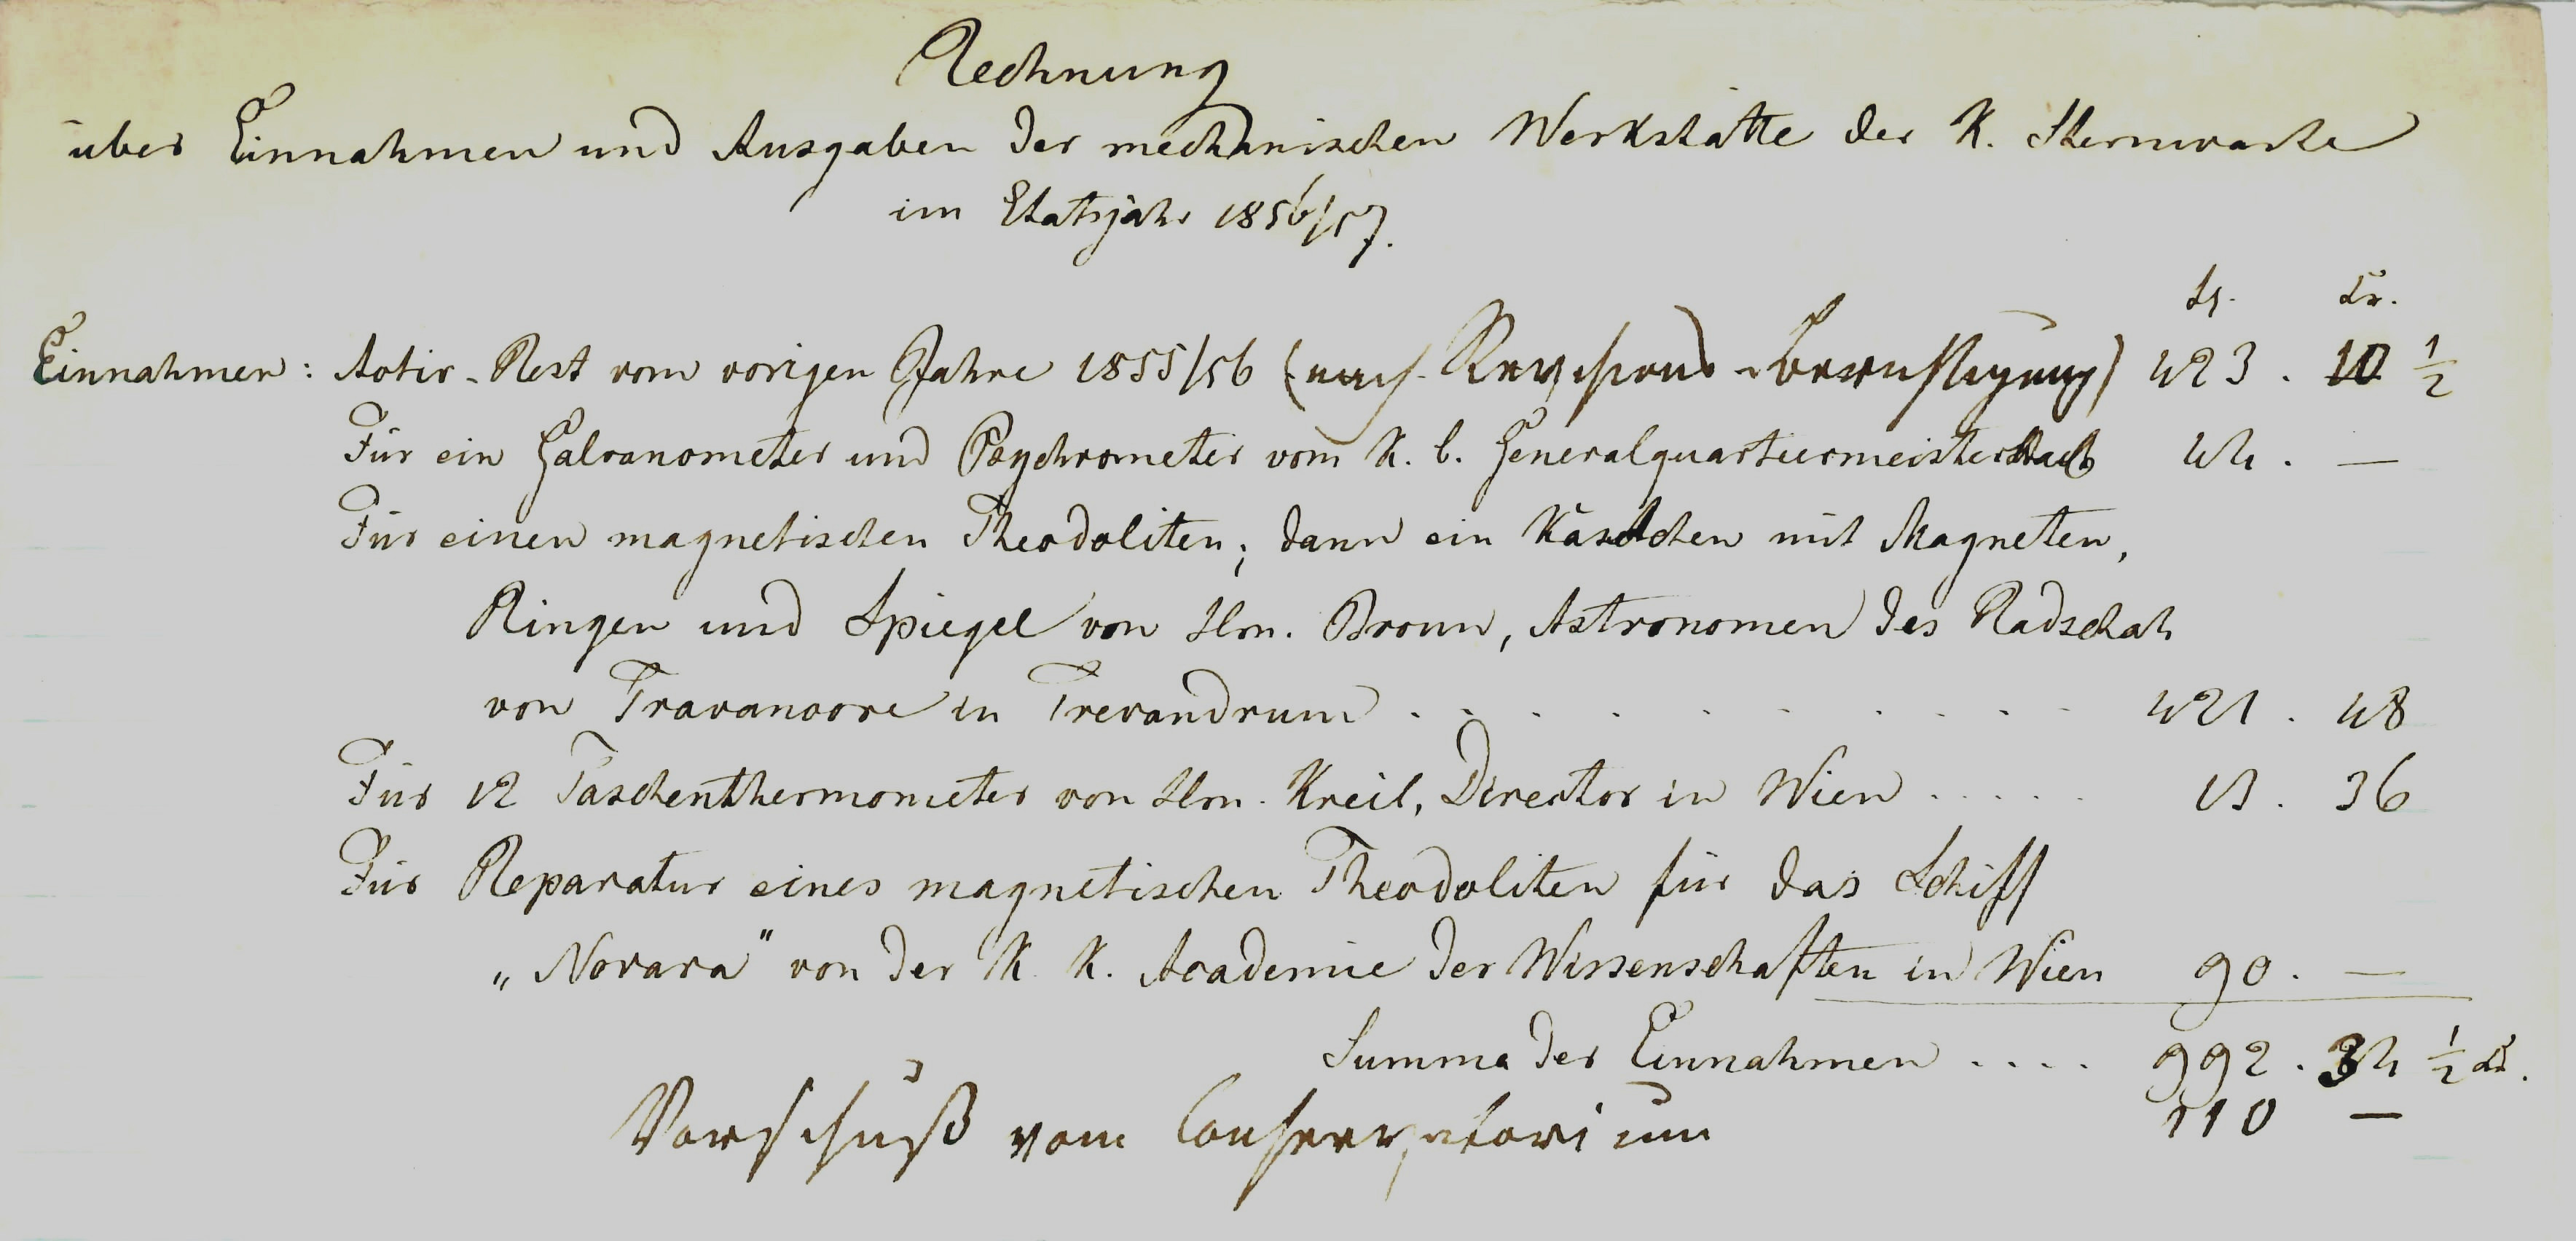 Rechnung
über Einnahmen und Ausgaben der mechanischen Werkstätte der K. Sternwarte
im Etatsjahr 1856/57.
fl. kr.
Einnahmen: Activ-Rest vom vorigen Jahre 1855/56 (nach Revisions-Berichtigung) 423. 10 ½
Für ein Galvanometer und Psychrometer vom K. b. Generalquartiermeisterstab 44. —
Für einen magnetischen Theodoliten; dann ein Kästchen mit Magneten,
Ringen und Spiegel von Hrn. Broun, Astronomen des Radschah
von Travancore in Trevandrum . . . . . . . . . 421. 48
Für 12 Taschenthermometer von Hrn. Kreil, Director in Wien . . . . . 13. 36
Für Reparatur eines magnetischen Theodoliten für das Schiff
„Novara" von der K. K. Academie der Wissenschaften in Wien 90. —
Summa der Einnahmen . . . . 992. 34 ½ kr.
Vorschuß vom Conservatorium 110 —